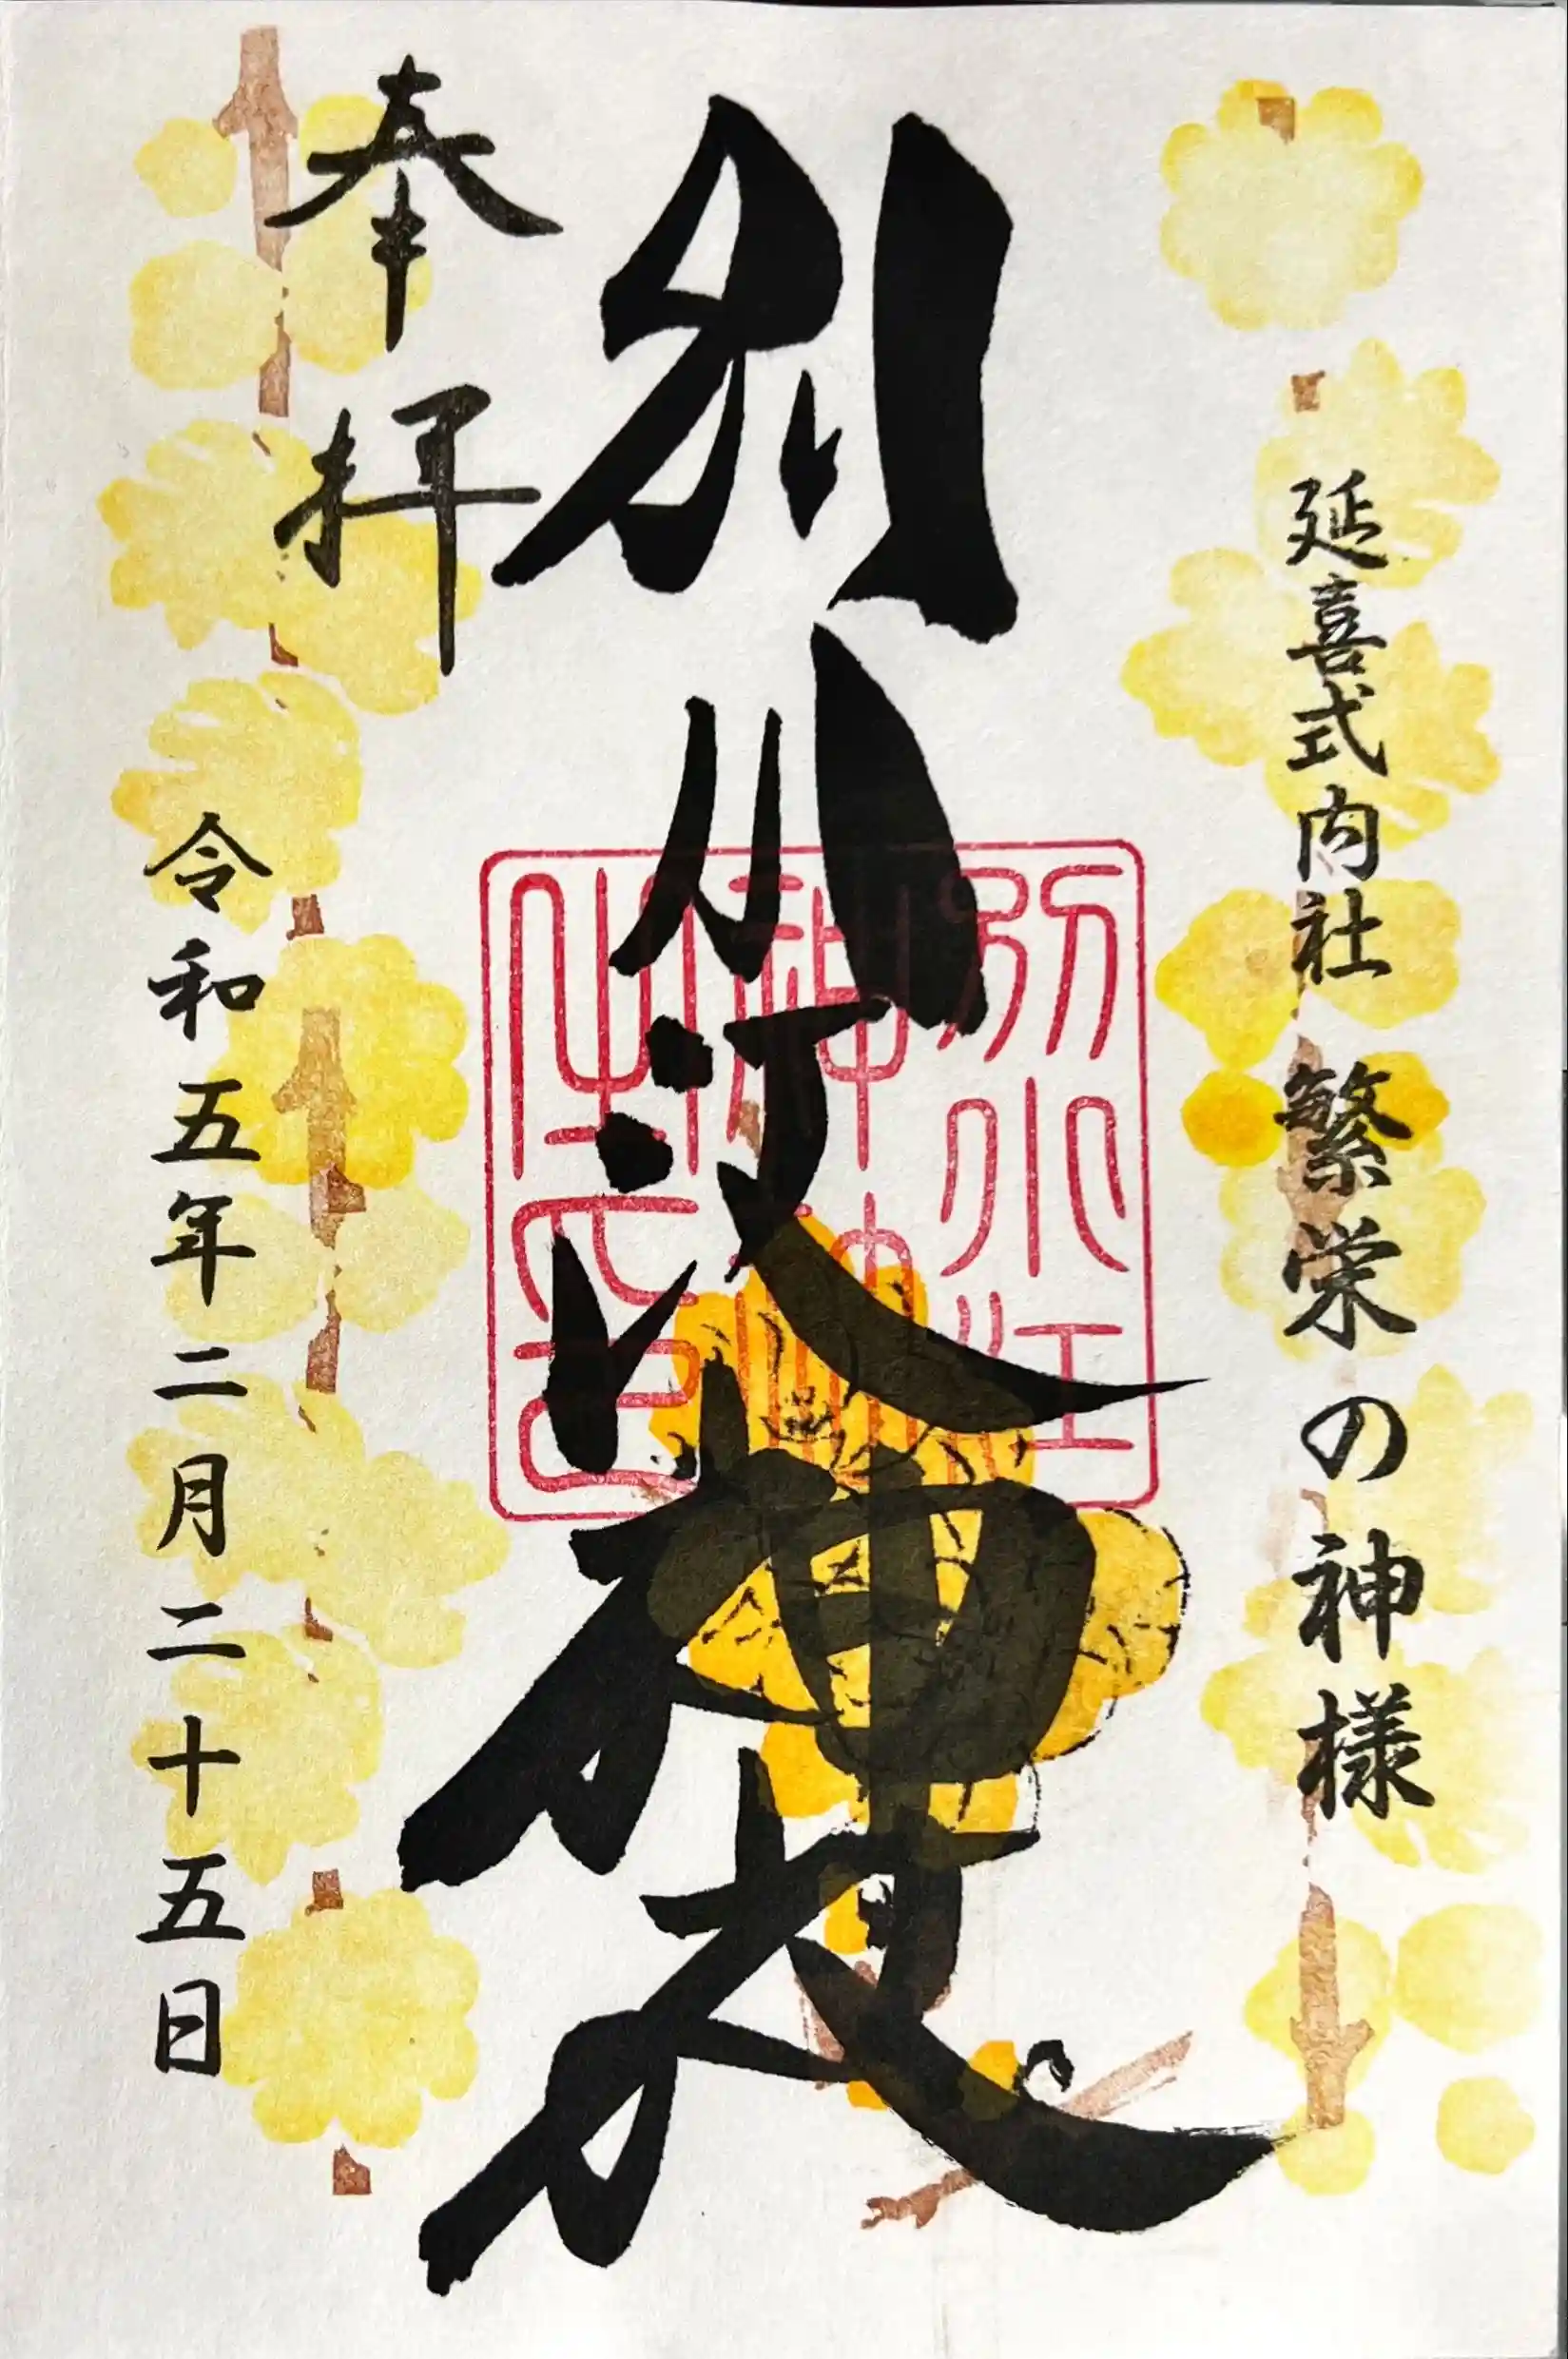 延喜式内社 繁栄の神様
別小江神社
別小江
奉拝
令和五年二月二十五日